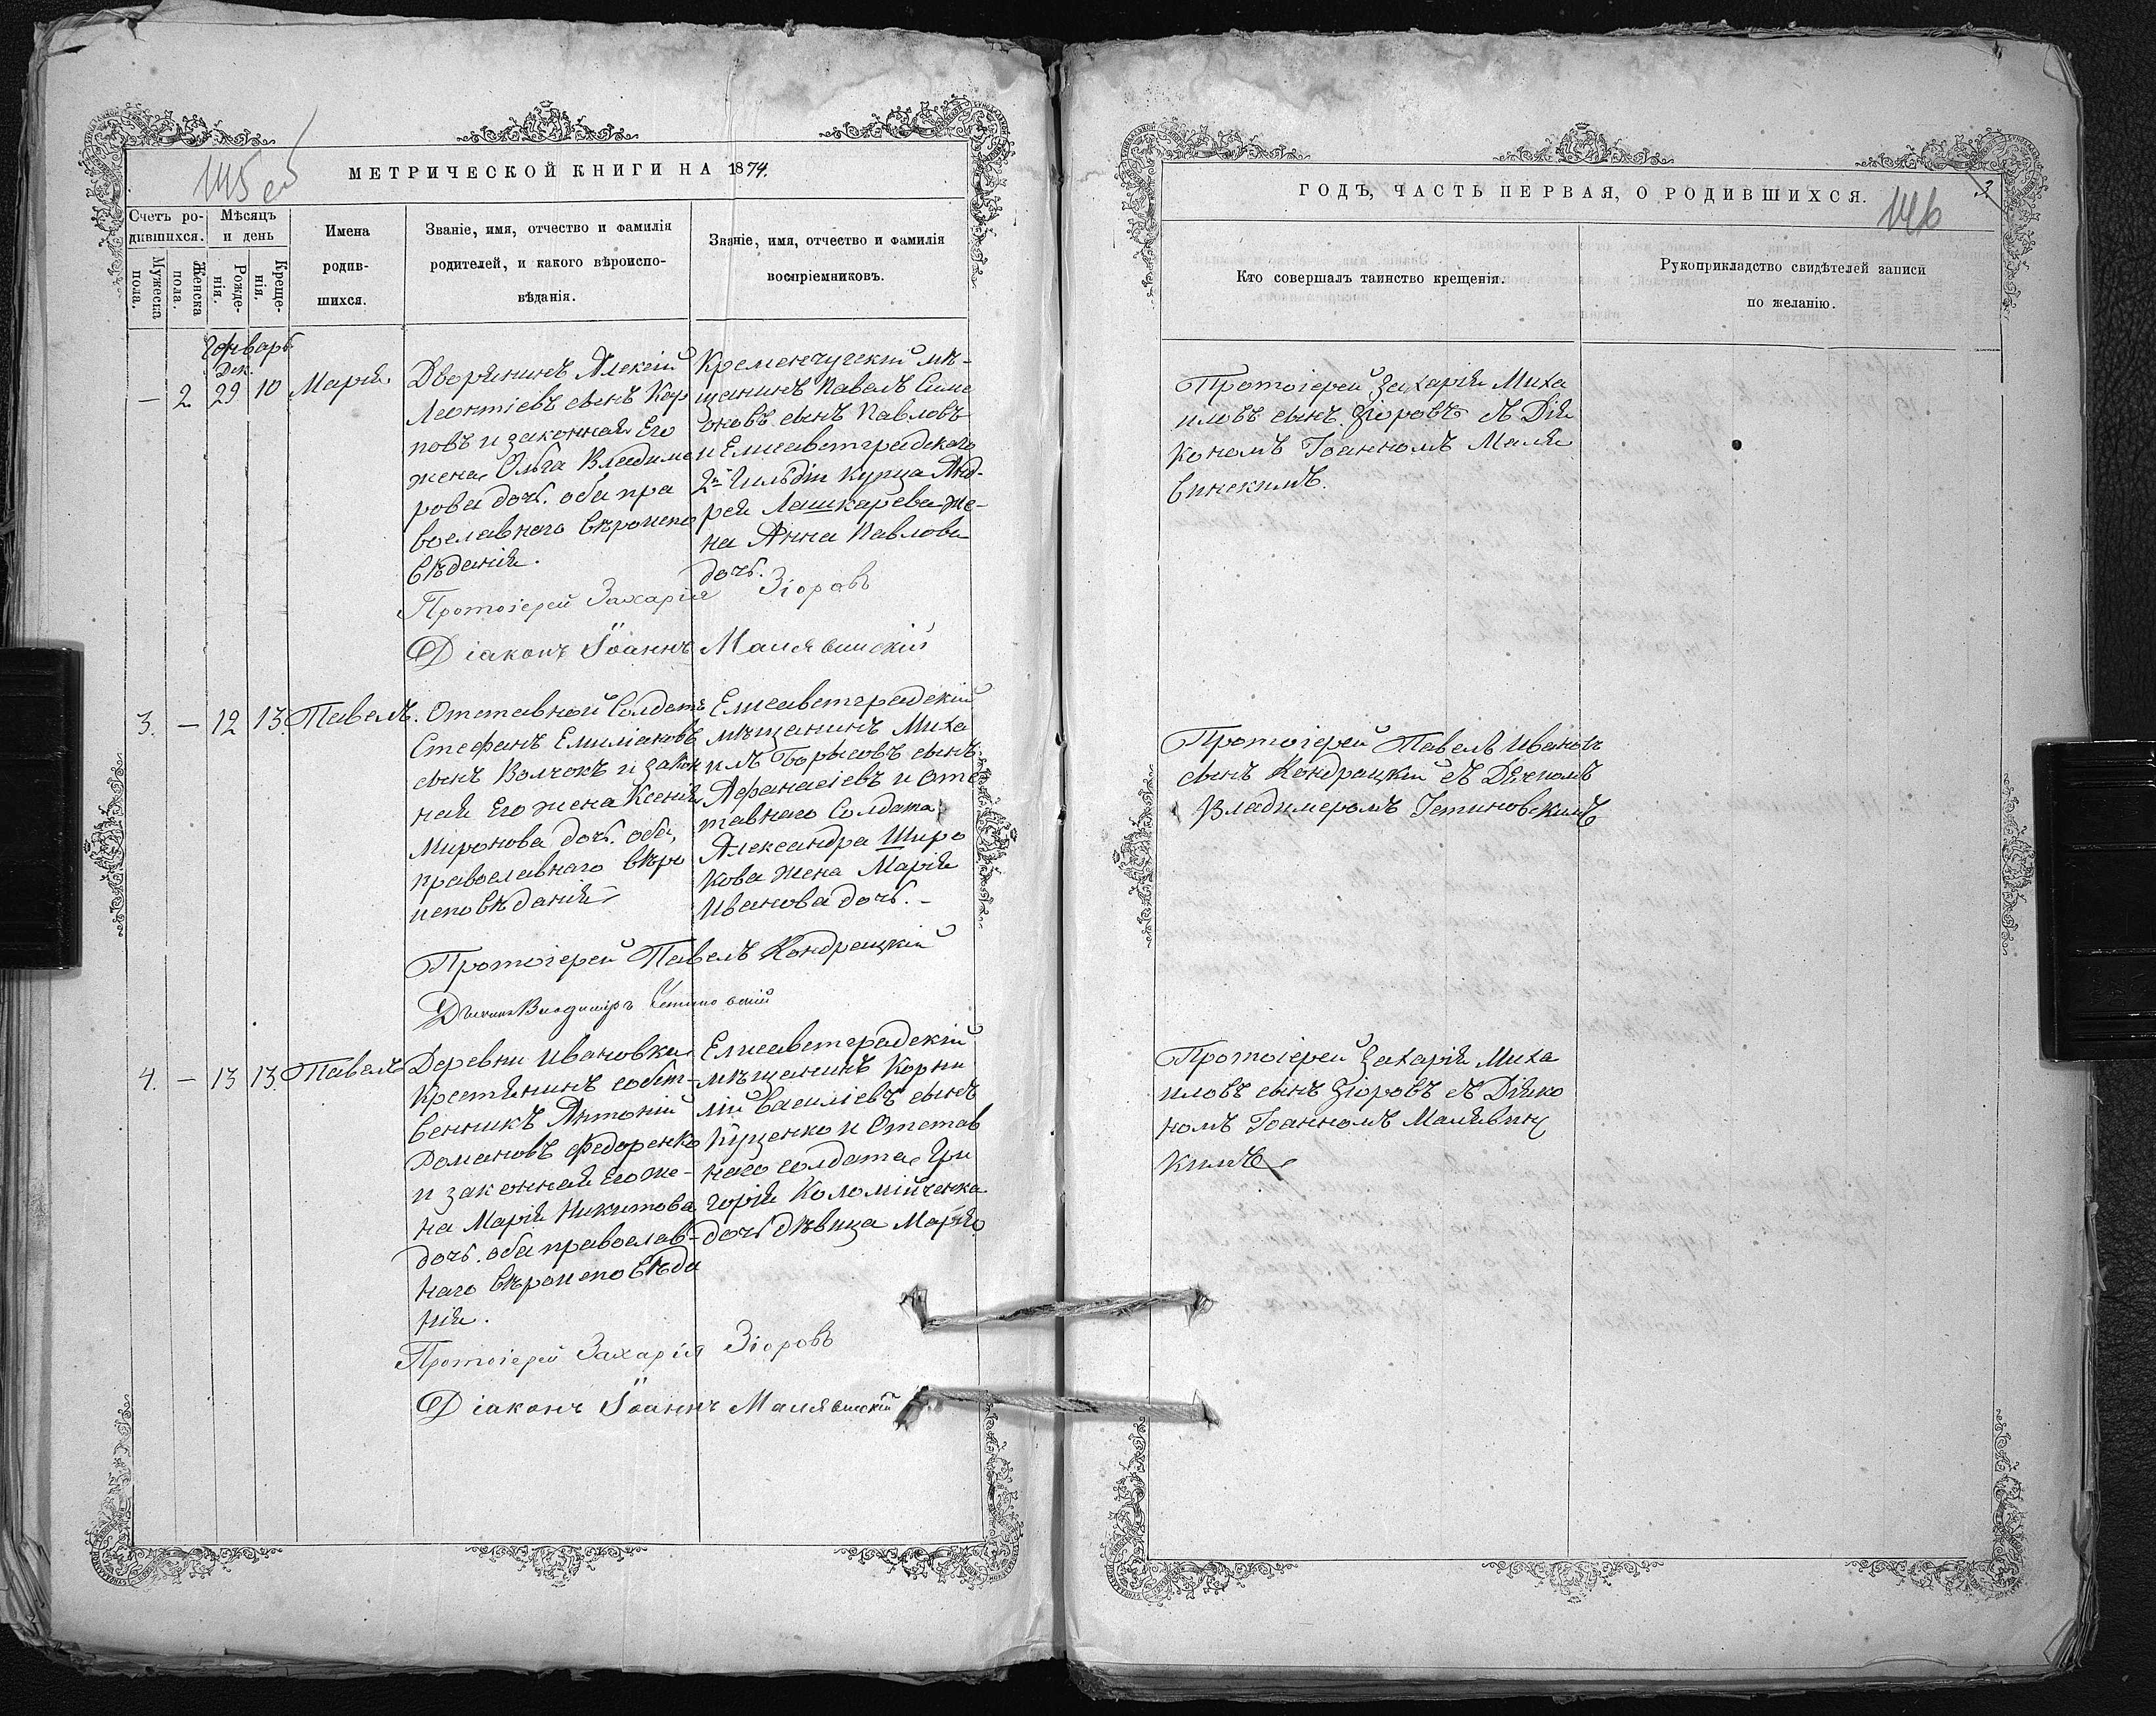 145 об
МЕТРИЧЕСКОЙ КНИГИ НА 1874.
Счетъ ро-
дившихся.
Мѣсяцъ
и день
Мужеска
пола.
Женска
пола.
Рожде-
нія.
Креще-
нія.
Имена
родив-
шихся.
Званіе, имя, отчество и фамилія
родителей, и какого вѣроиспо-
вѣданія.
Званіе, имя, отчество и фамилія
воспріемниковъ.
Январь
Дек.
— 2 29 10 Марія
Дворянинъ Алексій
Леонтіевъ сынъ Кар
повъ и законная Его
жена Ольга Владими
рова дочь. оба пра
вославнаго вѣроиспо
вѣданія.
Кременчугскій мѣ-
щанинъ Павелъ Симе
оновъ сынъ Павловъ
и Елисаветградскаго
2й Гильдіи Купца Анд-
рея Лашкарева же-
на Анна Павлова
дочь.
Протоіерей Захарія Зіоровъ
Діаконъ Іоаннъ Малявинскій
3. — 12 13. Павелъ.
Отставной Солдатъ
Стефанъ Емиліановъ
сынъ Волчокъ и закон
ная Его жена Ксенія
Миронова дочь. оба
православнаго вѣро
исповѣданія
Елисаветградскій
мѣщанинъ Миха
илъ Борисовъ сынъ
Афанасіевъ и Отс
тавнаго Солдата
Александра Широ
кова жена Марія
Иванова дочь. -
Протоіерей Павелъ Кондрацкій
Владимиръ
4. — 13 13. Павелъ
Деревни Ивановки
Крестянинъ собст-
венникъ Антоній
Романовъ Федоренко
и законная Его же-
на Марія Никитова
дочь. оба православ-
наго вѣроисповѣда
нія.
Елисаветградскій
мѣщанинъ Корни
лій Василіевъ сынъ
Куценко и Отстав
наго солдата Гри
горія Коломійченка
дочь дѣвица Марія
Протоіерей Захарія Зіоровъ
Діаконъ Іоаннъ Малявинскій
3
ГОДЪ, ЧАСТЬ ПЕРВАЯ, О РОДИВШИХСЯ.
146
Кто совершалъ таинство крещенія.
Рукоприкладство свидѣтелей записи
по желанію.
Протоіерей Захарія Миха
иловъ сынъ Зіоровъ съ Дія
кономъ Іоанномъ Маля
винскимъ.
Протоіерей Павелъ Ивановъ
сынъ Кондрацкій съ
Владимеромъ
Протоіерей Захарія Миха
иловъ сынъ Зіоровъ съ Діяко
номъ Іоанномъ Малявинс
кимъ